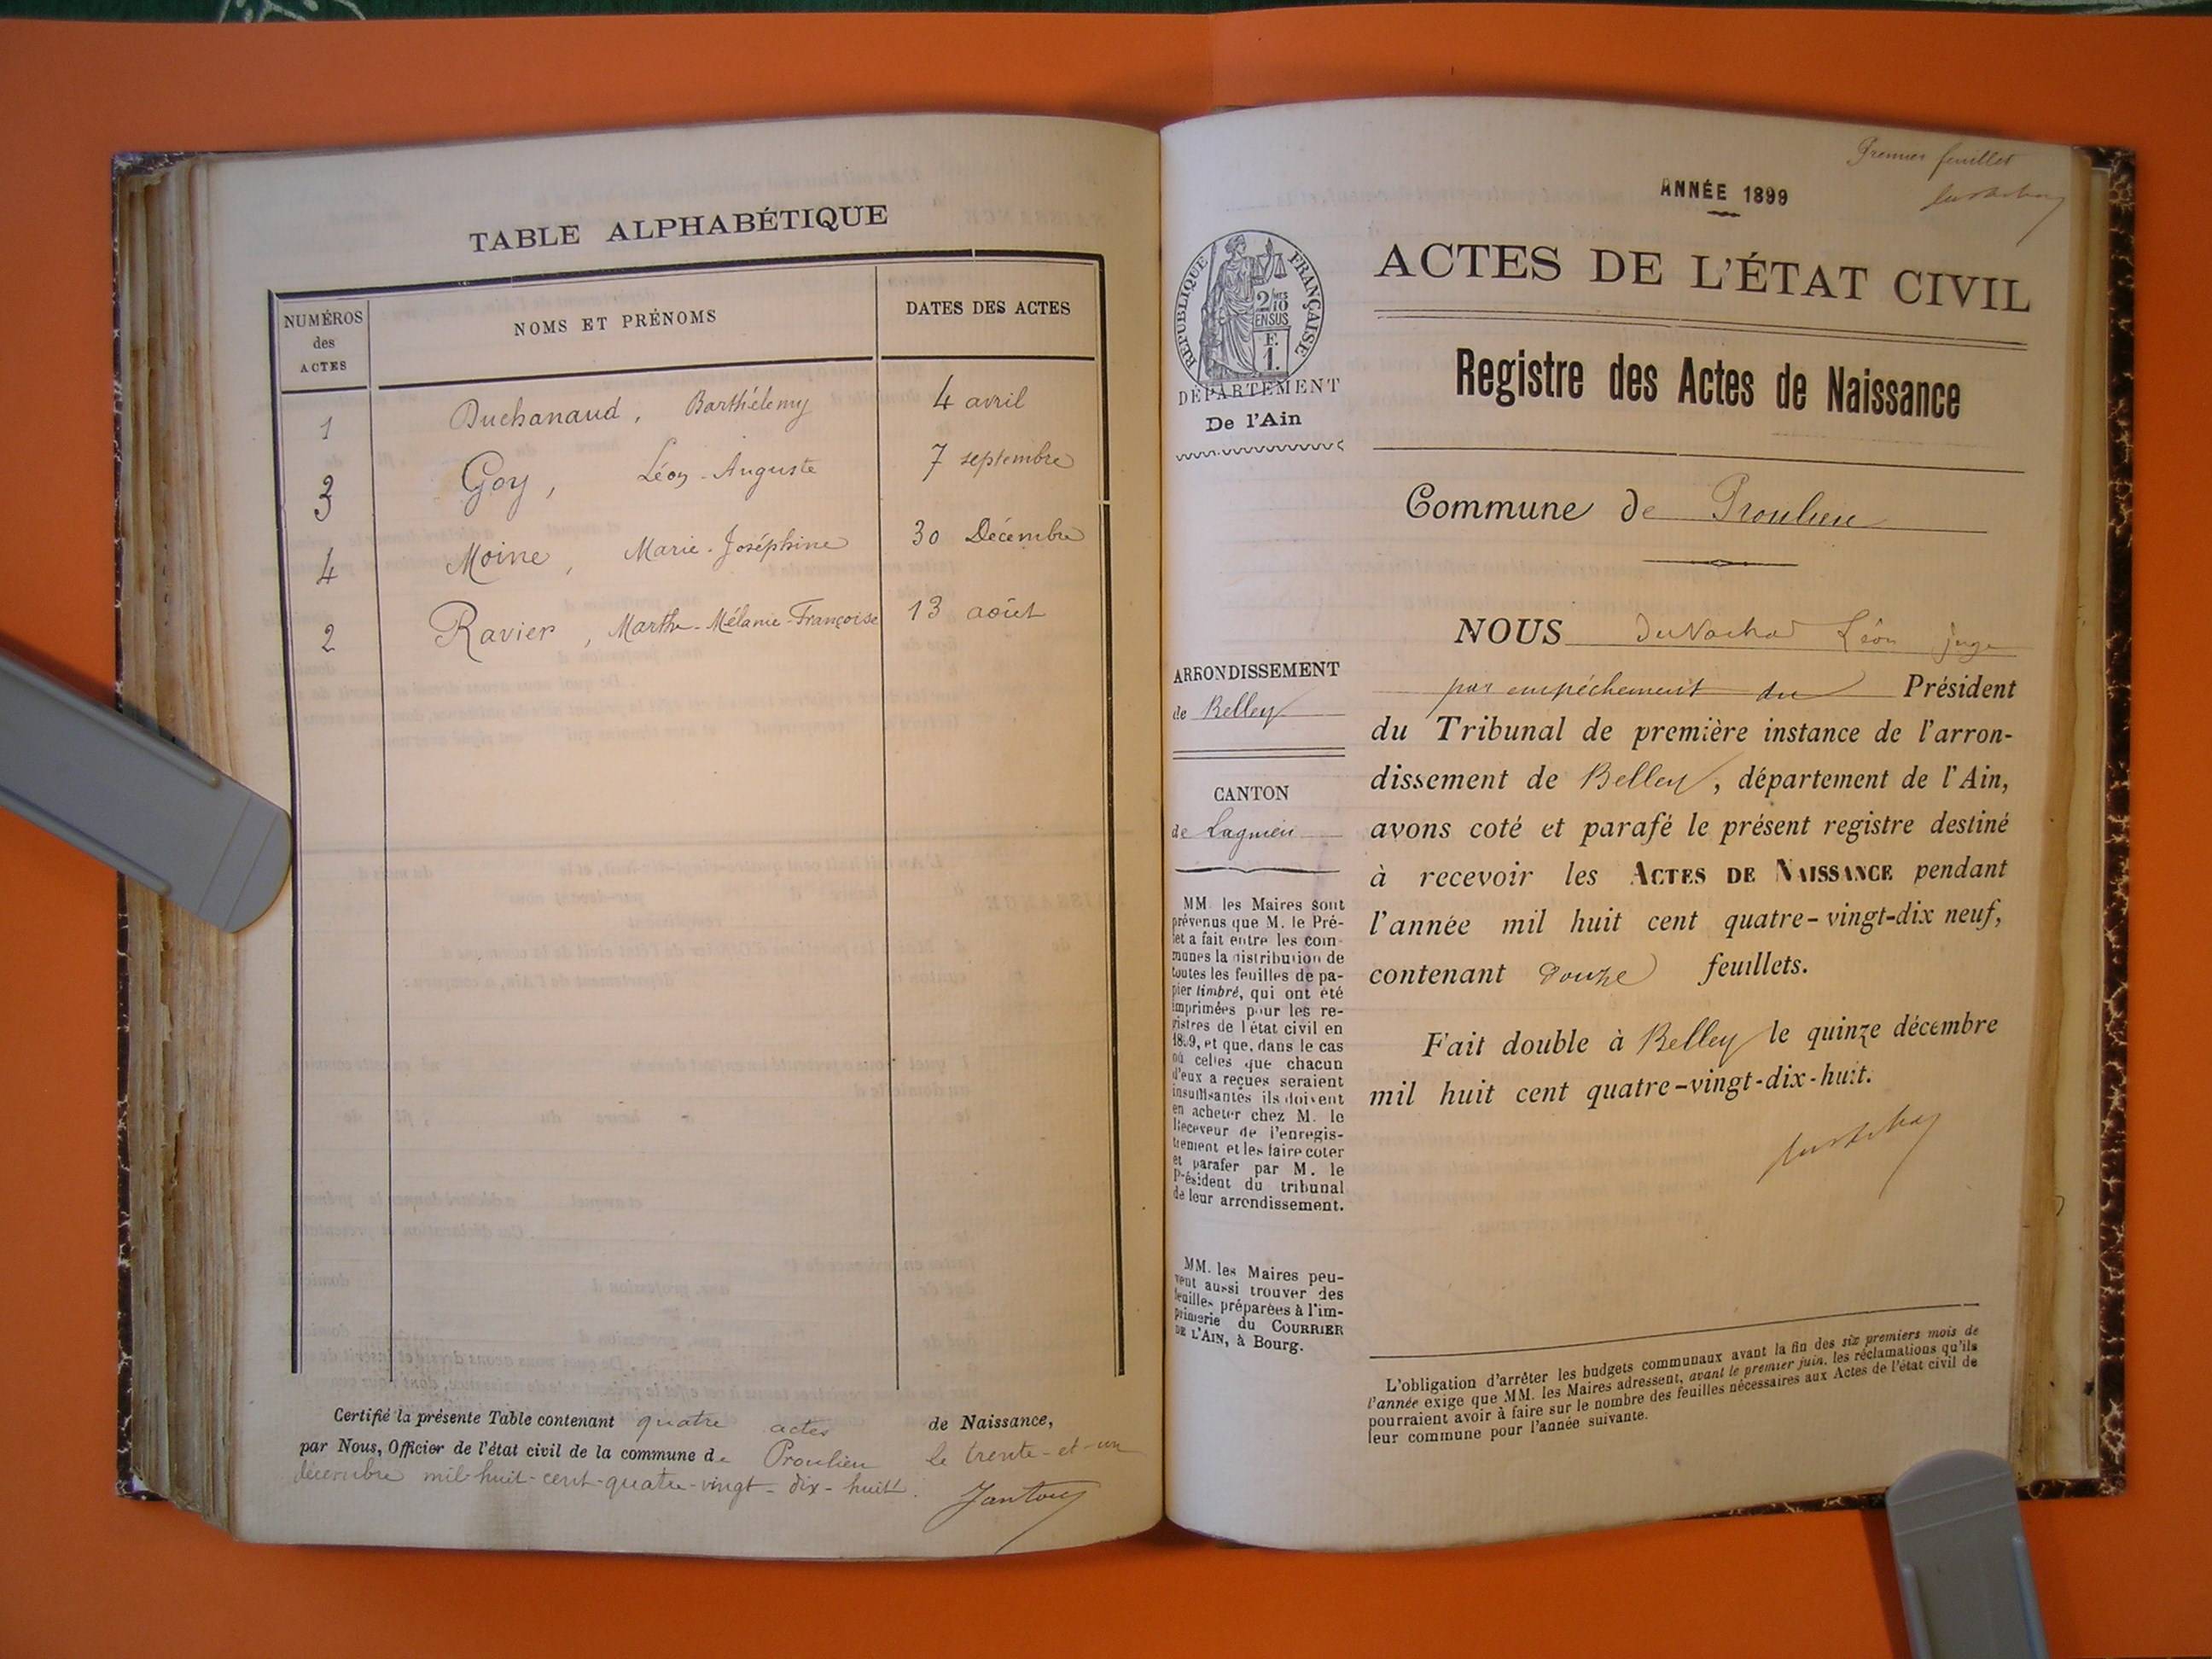 TABLE ALPHABÉTIQUE
NUMÉROS des ACTES
NOMS ET PRÉNOMS
DATES DES ACTES
1 Duchanaud, Barthélemy 4 avril
3 Goy, Léon-Auguste 7 septembre
4 Moine, Marie-Joséphine 30 Décembre
2 Ravier, Marthe-Mélanie-Françoise 13 août
Certifié la présente Table contenant quatre actes de Naissance,
par Nous, Officier de l'état civil de la commune de Proulieu le trente-et-un
décembre mil-huit-cent-quatre-vingt-dix-huit.
Premier feuillet
ANNÉE 1899
ACTES DE L'ÉTAT CIVIL
Registre des Actes de Naissance
RÉPUBLIQUE FRANÇAISE
2/10
EN SUS
F.
1.
DÉPARTEMENT
De l'Ain
Commune de Proulieu
NOUS Léon juge
par empêchement du Président
du Tribunal de première instance de l'arron-
dissement de Belley, département de l'Ain,
avons coté et parafé le présent registre destiné
à recevoir les ACTES DE NAISSANCE pendant
l'année mil huit cent quatre-vingt-dix neuf,
contenant douze feuillets.
Fait double à Belley le quinze décembre
mil huit cent quatre-vingt-dix-huit.
ARRONDISSEMENT
de Belley
CANTON
de Lagnieu
MM. les Maires sont
prévenus que M. le Pré-
fet a fait entre les com-
munes la distribution de
toutes les feuilles de pa-
pier timbré, qui ont été
imprimées pour les re-
gistres de l'état civil en
1899, et que, dans le cas
où celles que chacun
d'eux a reçues seraient
insuffisantes ils doivent
en acheter chez M. le
Receveur de l'enregis-
trement et les faire coter
et parafer par M. le
Président du tribunal
de leur arrondissement.
MM. les Maires peu-
vent aussi trouver des
feuilles préparées à l'im-
primerie du COURRIER
DE L'AIN, à Bourg.
L'obligation d'arrêter les budgets communaux avant la fin des six premiers mois de
l'année exige que MM. les Maires adressent, avant le premier juin, les réclamations qu'ils
pourraient avoir à faire sur le nombre des feuilles nécessaires aux Actes de l'état civil de
leur commune pour l'année suivante.